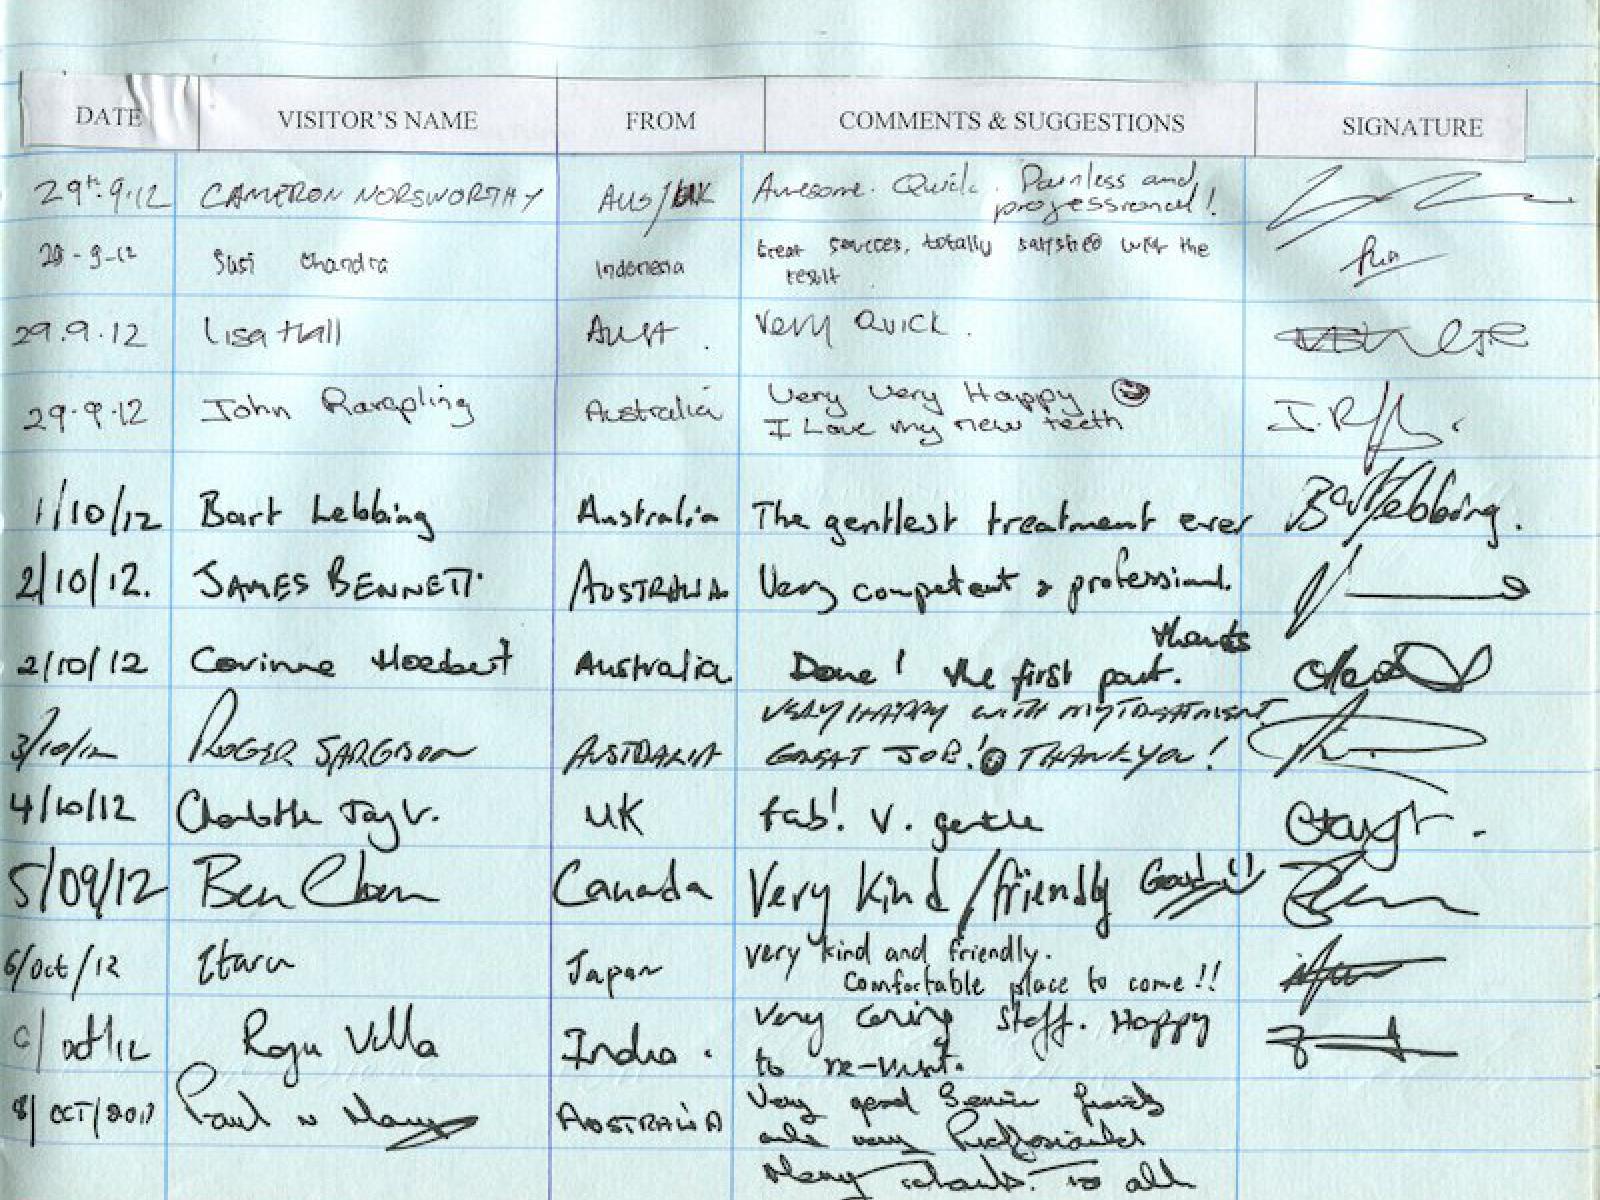 DATE VISITOR'S NAME FROM COMMENTS & SUGGESTIONS SIGNATURE
29th.9.12 CAMERON NORSWORTHY AUS/UK Awesome. Quick. Painless and
professional!
29-9-12 Susi Chandra Indonesia Great services, totally satisfied with the
result
29.9.12 Lisa Hall Aust. Very Quick.
29.9.12 John Rarapling Australia Very Very Happy
I Love my new teeth J.R
1/10/12 Bart Lebbing Australia The gentlest treatment ever Bart Lebbing.
2/10/12. JAMES BENNETT AUSTRALIA Very competent & professional.
thanks
2/10/12 Corinne Australia Done! the first part.
VERY HAPPY WITH MY TREATMENT
3/10/12 ROGER SARGISON AUSTRALIA GREAT JOB! THANKYOU!
4/10/12 Charlotte UK Fab! V. gentle
5/09/12 Ben Canada Very Kind/friendly Good
6/Oct/12 Itaru Japan very kind and friendly.
Comfortable place to come!!
6/Oct/12 Raju Villa India. Very Caring Staff. Happy
to re-visit.
8/OCT/2012 Paul AUSTRALIA Very good Service friendly
and very Proffesional
Many thanks. To all